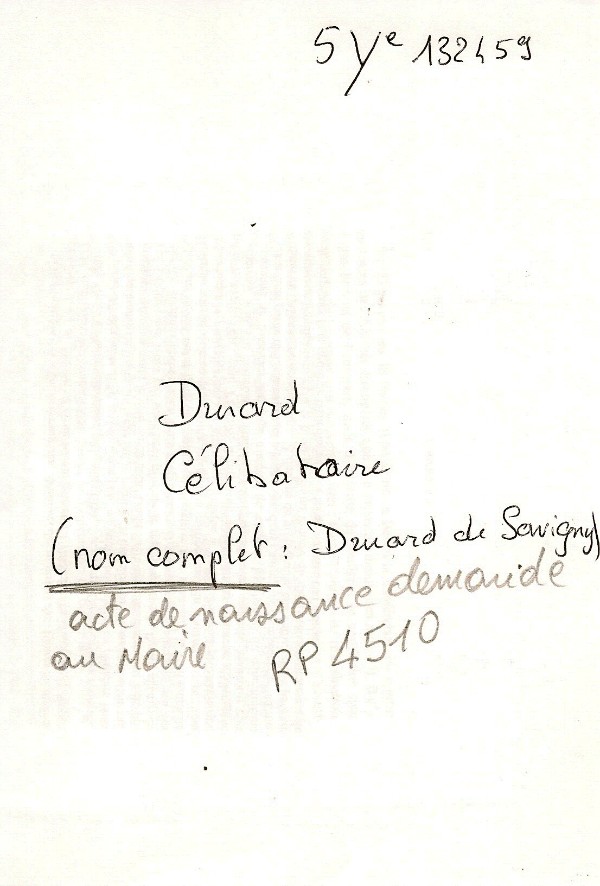 5 Ye 132459
Druard
Célibataire
(nom complet : Druard de Savigny)
acte de naissance demandé
au Maire RP 4510